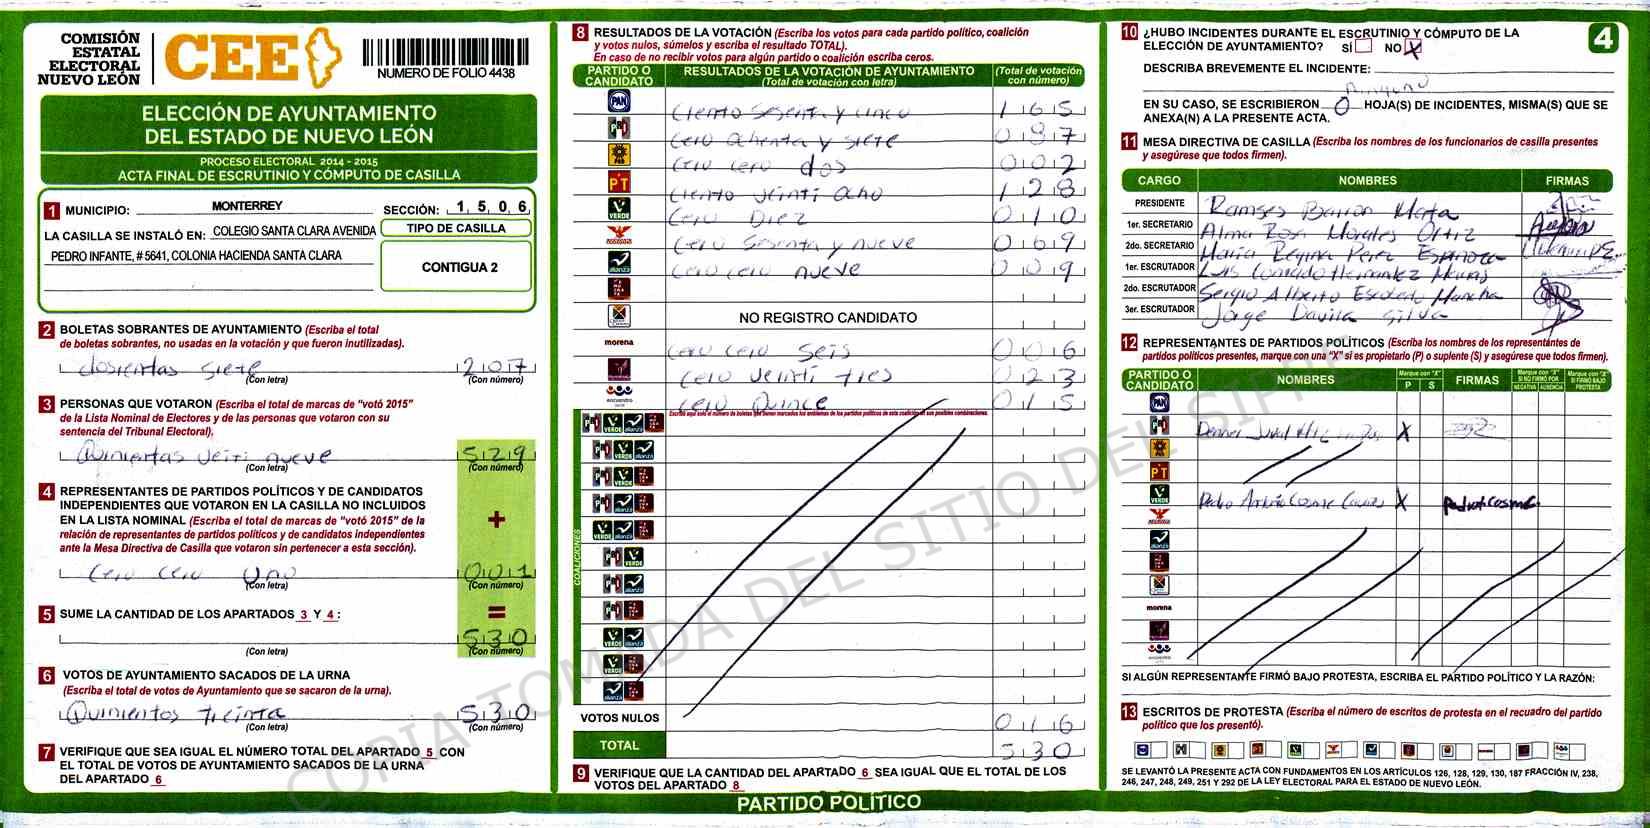 COMISIÓN
ESTATAL
ELECTORAL
NUEVO LEÓN
CEE
NUMERO DE FOLIO 4438
ELECCIÓN DE AYUNTAMIENTO
DEL ESTADO DE NUEVO LEÓN
PROCESO ELECTORAL 2014 - 2015
ACTA FINAL DE ESCRUTINIO Y CÓMPUTO DE CASILLA
1 MUNICIPIO: MONTERREY SECCIÓN: 1,5,0,6
LA CASILLA SE INSTALÓ EN: COLEGIO SANTA CLARA AVENIDA
PEDRO INFANTE, # 5641, COLONIA HACIENDA SANTA CLARA
TIPO DE CASILLA
CONTIGUA 2
2 BOLETAS SOBRANTES DE AYUNTAMIENTO (Escriba el total
de boletas sobrantes, no usadas en la votación y que fueron inutilizadas).
dosientas siete 2 0 7
(Con letra) (Con número)
3 PERSONAS QUE VOTARON (Escriba el total de marcas de "votó 2015"
de la Lista Nominal de Electores y de las personas que votaron con su
sentencia del Tribunal Electoral).
Quinientas veiti nueve 5 2 9
(Con letra) (Con número)
4 REPRESENTANTES DE PARTIDOS POLÍTICOS Y DE CANDIDATOS
INDEPENDIENTES QUE VOTARON EN LA CASILLA NO INCLUIDOS
EN LA LISTA NOMINAL (Escriba el total de marcas de "votó 2015" de la
relación de representantes de partidos políticos y de candidatos independientes
ante la Mesa Directiva de Casilla que votaron sin pertenecer a esta sección).
+
Cero cero uno 0 0 1
(Con letra) (Con número)
5 SUME LA CANTIDAD DE LOS APARTADOS 3 Y 4 :
=
5 3 0
(Con letra) (Con número)
6 VOTOS DE AYUNTAMIENTO SACADOS DE LA URNA
(Escriba el total de votos de Ayuntamiento que se sacaron de la urna).
Quinientos treinta 5 3 0
(Con letra) (Con número)
7 VERIFIQUE QUE SEA IGUAL EL NÚMERO TOTAL DEL APARTADO 5 CON
EL TOTAL DE VOTOS DE AYUNTAMIENTO SACADOS DE LA URNA
DEL APARTADO 6
8 RESULTADOS DE LA VOTACIÓN (Escriba los votos para cada partido político, coalición
y votos nulos, súmelos y escriba el resultado TOTAL).
En caso de no recibir votos para algún partido o coalición escriba ceros.
PARTIDO O CANDIDATO RESULTADOS DE LA VOTACIÓN DE AYUNTAMIENTO (Total de votación con letra) (Total de votación con número)
PAN ciento sesenta y cinco 1 6 5
PRI cero ochenta y siete 0 8 7
PRD cero cero dos 0 0 2
PT ciento veinti ocho 1 2 8
VERDE cero Diez 0 1 0
cero sesenta y nueve 0 6 9
alianza cero cero nueve 0 0 9
NO REGISTRO CANDIDATO
morena cero cero seis 0 0 6
cero veinti tres 0 2 3
encuentro cero Quince 0 1 5
Escriba aquí solo el número de boletas que tienen marcados los emblemas de los partidos políticos de esta coalición en sus posibles combinaciones.
COALICIONES
VOTOS NULOS 0 1 6
TOTAL 5 3 0
9 VERIFIQUE QUE LA CANTIDAD DEL APARTADO 6 SEA IGUAL QUE EL TOTAL DE LOS
VOTOS DEL APARTADO 8
PARTIDO POLÍTICO
10 ¿HUBO INCIDENTES DURANTE EL ESCRUTINIO Y CÓMPUTO DE LA
ELECCIÓN DE AYUNTAMIENTO? SÍ NO X
4
DESCRIBA BREVEMENTE EL INCIDENTE:
Ninguno
EN SU CASO, SE ESCRIBIERON 0 HOJA(S) DE INCIDENTES, MISMA(S) QUE SE
ANEXA(N) A LA PRESENTE ACTA.
11 MESA DIRECTIVA DE CASILLA (Escriba los nombres de los funcionarios de casilla presentes
y asegúrese que todos firmen).
CARGO NOMBRES FIRMAS
PRESIDENTE Ramses Barron Mata
1er. SECRETARIO Alma Rosa Morales Ortiz
2do. SECRETARIO Maria Regina Perez Espinoza
1er. ESCRUTADOR Luis Conrado Hernandez
2do. ESCRUTADOR Sergio Alberto Escobedo Mancha
3er. ESCRUTADOR Jorge Davila Silva
12 REPRESENTANTES DE PARTIDOS POLÍTICOS (Escriba los nombres de los representantes de
partidos políticos presentes, marque con una "X" si es propietario (P) o suplente (S) y asegúrese que todos firmen).
PARTIDO O CANDIDATO NOMBRES Marque con "X" P S FIRMAS Marque con "X" SI NO FIRMÓ POR NEGATIVA AUSENCIA Marque con "X" SI FIRMÓ BAJO PROTESTA
PAN
PRI X
PRD
PT
VERDE Pedro Antonio Cosme X
alianza
morena
encuentro
SI ALGÚN REPRESENTANTE FIRMÓ BAJO PROTESTA, ESCRIBA EL PARTIDO POLÍTICO Y LA RAZÓN:
13 ESCRITOS DE PROTESTA (Escriba el número de escritos de protesta en el recuadro del partido
político que los presentó).
SE LEVANTÓ LA PRESENTE ACTA CON FUNDAMENTOS EN LOS ARTÍCULOS 126, 128, 129, 130, 187 FRACCIÓN IV, 238,
246, 247, 248, 249, 251 Y 292 DE LA LEY ELECTORAL PARA EL ESTADO DE NUEVO LEÓN.
COPIA TOMADA DEL SITIO DEL SIPRE